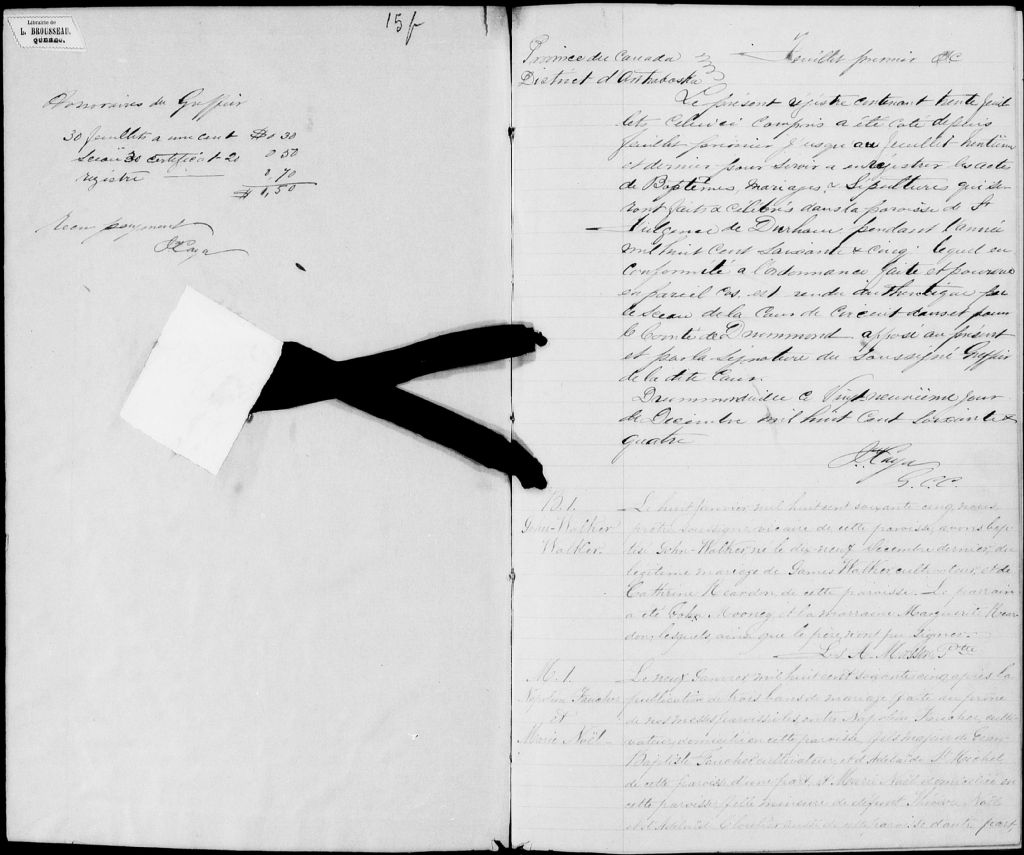 Librairie de
L. BROUSSEAU,
QUÉBEC.
15 f
Honoraires du Greffier
30 feuillets a un cent $0 30
Sceau 30 certificat 20 0 50
registre 0,70
$1,50
Recu payment
Caya
Province du Canada
District d'Arthabaska
Feuillet premier
Le présent régistre contenant trente feuil
lets celui ci compris a été coté depuis
feuillet premier jusqu au feuillet trentième
et dernier pour servir a enregistrer les actes
de Baptêmes, mariages, & Sépultures qui se
ront faits & célébrés dans la paroisse de St
Fulgence de Durham pendant l'année
mil huit cent Soixante & Cinq: lequel en
conformité a l'ordonnance faite et pourvue
en pareil cas, est rendu authentique par
le Sceau de la Cour de Circuit dans et pour
le Comté de Drummond apposé au présent
et par la signature du Soussigné Greffier
de la dite Cour.
Drummondville ce Vingt neuvième jour
de Décembre mil huit Cent Soixante &
quatre
Caya
G. C. C.
B. 1.
John-Walker
Walker.
Le huit Janvier mil huit cent soixante cinq, nous
prêtre soussigné vicaire de cette paroisse, avons bap
tisé John-Walker, né le dix-neuf Décembre dernier, du
légitime mariage de James Walker cultivateur, et de
Cathrine Reardon de cette paroisse. Le parrain
a été John Mooney et la marraine Marguerite Rear
don, lesquels, ainsi que le père, n'ont pu signer.
Ls A. Masson Ptre
M. 1.
Napoléon Faucher
et
Marie Noël
Le neuf Janvier mil huit cent soixante cinq, après la
publication de trois bans de mariage faite au prône
de nos messes paroissiales entre Napoléon Faucher, culti
vateur, domicilié en cette paroisse, fils majeur de Jean
Baptiste Faucher cultivateur, et d'Adelaide St Michel
de cette paroisse d'une part, et Marie Noël domiciliée en
cette paroisse, fille mineure de défunt Noël
et d'Adelaide Cloutier aussi de cette paroisse d'autre part